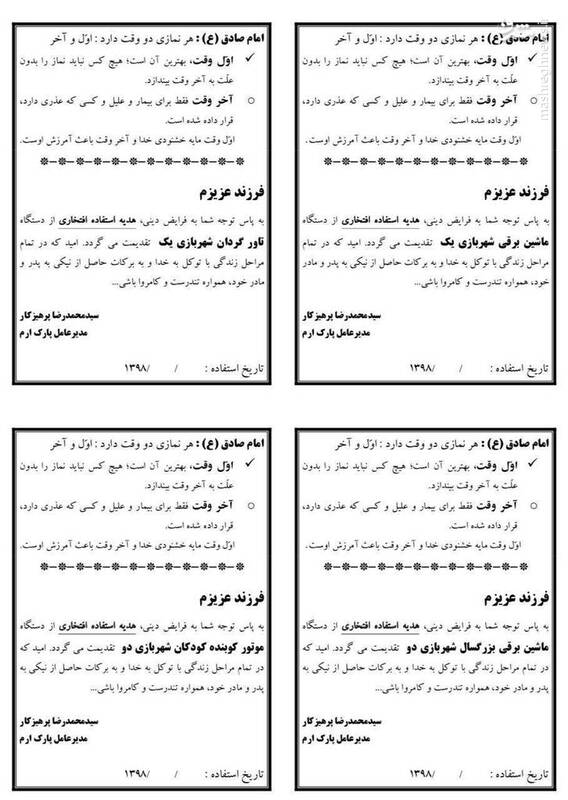 امام صادق (ع) : هر نمازی دو وقت دارد : اوّل و آخر
✓ اوّل وقت، بهترین آن است؛ هیچ کس نباید نماز را بدون
علّت به آخر وقت بیندازد.
○ آخر وقت فقط برای بیمار و علیل و کسی که عذری دارد،
قرار داده شده است.
اوّل وقت مایه خشنودی خدا و آخر وقت باعث آمرزش اوست.
فرزند عزیزم
به پاس توجه شما به فرایض دینی، هدیه استفاده افتخاری از دستگاه
ماشین برقی شهربازی یک تقدیمت می گردد. امید که در تمام
مراحل زندگی با توکل به خدا و به برکات حاصل از نیکی به پدر و مادر
خود، همواره تندرست و کامروا باشی...
سیدمحمدرضا پرهیزکار
مدیرعامل پارک ارم
تاریخ استفاده : / /۱۳۹۸
امام صادق (ع) : هر نمازی دو وقت دارد : اوّل و آخر
✓ اوّل وقت، بهترین آن است؛ هیچ کس نباید نماز را بدون
علّت به آخر وقت بیندازد.
○ آخر وقت فقط برای بیمار و علیل و کسی که عذری دارد،
قرار داده شده است.
اوّل وقت مایه خشنودی خدا و آخر وقت باعث آمرزش اوست.
فرزند عزیزم
به پاس توجه شما به فرایض دینی، هدیه استفاده افتخاری از دستگاه
تاور گردان شهربازی یک تقدیمت می گردد. امید که در تمام
مراحل زندگی با توکل به خدا و به برکات حاصل از نیکی به پدر و
مادر خود، همواره تندرست و کامروا باشی...
سیدمحمدرضا پرهیزکار
مدیرعامل پارک ارم
تاریخ استفاده : / /۱۳۹۸
امام صادق (ع) : هر نمازی دو وقت دارد : اوّل و آخر
✓ اوّل وقت، بهترین آن است؛ هیچ کس نباید نماز را بدون
علّت به آخر وقت بیندازد.
○ آخر وقت فقط برای بیمار و علیل و کسی که عذری دارد،
قرار داده شده است.
اوّل وقت مایه خشنودی خدا و آخر وقت باعث آمرزش اوست.
فرزند عزیزم
به پاس توجه شما به فرایض دینی، هدیه استفاده افتخاری از دستگاه
ماشین برقی بزرگسال شهربازی دو تقدیمت می گردد. امید که
در تمام مراحل زندگی با توکل به خدا و به برکات حاصل از نیکی به
پدر و مادر خود، همواره تندرست و کامروا باشی...
سیدمحمدرضا پرهیزکار
مدیرعامل پارک ارم
تاریخ استفاده : / /۱۳۹۸
امام صادق (ع) : هر نمازی دو وقت دارد : اوّل و آخر
✓ اوّل وقت، بهترین آن است؛ هیچ کس نباید نماز را بدون
علّت به آخر وقت بیندازد.
○ آخر وقت فقط برای بیمار و علیل و کسی که عذری دارد،
قرار داده شده است.
اوّل وقت مایه خشنودی خدا و آخر وقت باعث آمرزش اوست.
فرزند عزیزم
به پاس توجه شما به فرایض دینی، هدیه استفاده افتخاری از دستگاه
موتور کوبنده کودکان شهربازی دو تقدیمت می گردد. امید که
در تمام مراحل زندگی با توکل به خدا و به برکات حاصل از نیکی به
پدر و مادر خود، همواره تندرست و کامروا باشی...
سیدمحمدرضا پرهیزکار
مدیرعامل پارک ارم
تاریخ استفاده : / /۱۳۹۸